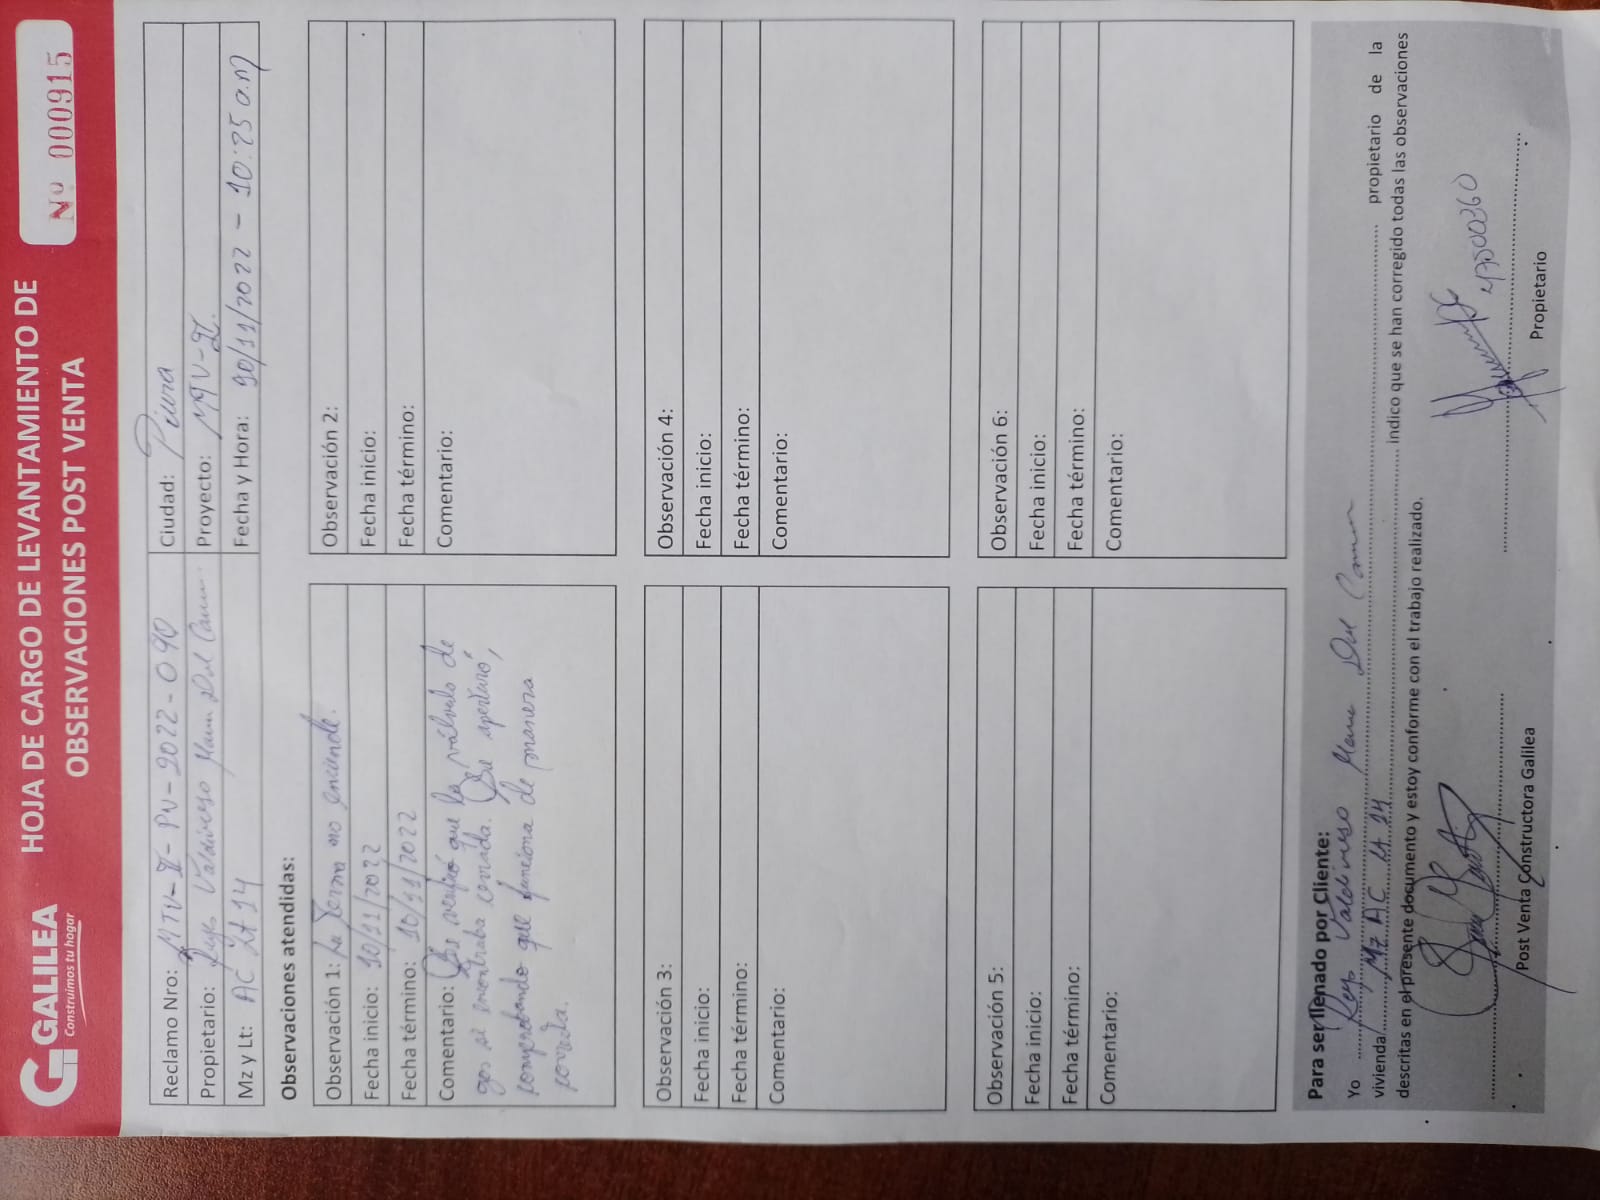 GALILEA
Construimos tu hogar
HOJA DE CARGO DE LEVANTAMIENTO DE
OBSERVACIONES POST VENTA
Nº 000915
Reclamo Nro: MTV-II-PV-2022-090
Ciudad: Piura
Propietario: Reyes Valdiviezo Maria Del Carmen
Proyecto: MTV-II.
Mz y Lt: AC Lt 14
Fecha y Hora: 10/11/2022 - 10:25 a.m
Observaciones atendidas:
Observación 1: La Terma no enciende.
Fecha inicio: 10/11/2022
Fecha término: 10/11/2022
Comentario: Se verificó que la válvula de
gas se encontraba cerrada. Se aperturó,
comprobando que funciona de manera
correcta.
Observación 2:
Fecha inicio:
Fecha término:
Comentario:
Observación 3:
Fecha inicio:
Fecha término:
Comentario:
Observación 4:
Fecha inicio:
Fecha término:
Comentario:
Observación 5:
Fecha inicio:
Fecha término:
Comentario:
Observación 6:
Fecha inicio:
Fecha término:
Comentario:
Para ser llenado por Cliente:
Yo Reyes Valdiviezo Maria Del Carmen propietario de la
vivienda Mz AC Lt 14 indico que se han corregido todas las observaciones
descritas en el presente documento y estoy conforme con el trabajo realizado.
Post Venta Constructora Galilea
47500360
Propietario